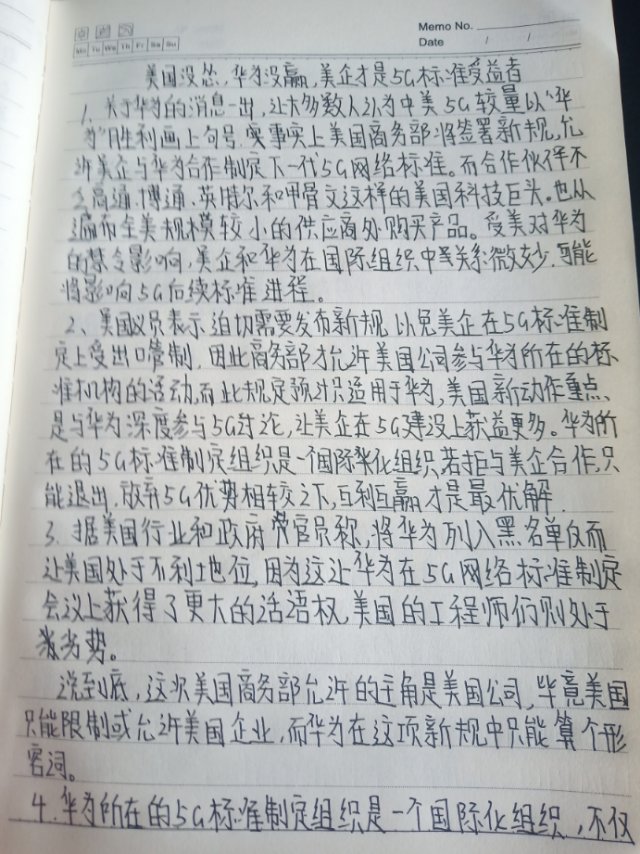 Memo No.
Mo Tu We Th Fr Sa Su
Date / /
美国没怂，华为没赢，美企才是5G标准受益者
1、关于华为的消息一出，让大多数人认为中美5G较量以“华
为”胜利画上句号。事实上美国商务部将签署新规，允
许美企与华为合作制定下一代5G网络标准。而合作伙伴不
乏高通、博通、英特尔和甲骨文这样的美国科技巨头。也从
遍布全美规模较小的供应商处购买产品。受美对华为
的禁令影响，美企和华为在国际组织中关系微妙，可能
将影响5G后续标准进程。
2、美国议员表示迫切需要发布新规以免美企在5G标准制
定上受出口管制，因此商务部才允许美国公司参与华为所在的标
准机构的活动，而此规定预计只适用于华为，美国新动作重点
是与华为深度参与5G讨论，让美企在5G建设上获益更多。华为所
在的5G标准制定组织是一个国际化组织，若拒与美企合作，只
能退出，放弃5G优势相较之下，互利互赢才是最优解.
3、据美国行业和政府官员称，将华为列入黑名单反而
让美国处于不利地位，因为这让华为在5G网络标准制定
会议上获得了更大的话语权，美国的工程师们则处于
劣势。
说到底，这次美国商务部允许的主角是美国公司，毕竟美国
只能限制或允许美国企业，而华为在这项新规中只能算个形
容词。
4.华为所在的5G标准制定组织是一个国际化组织，不仅